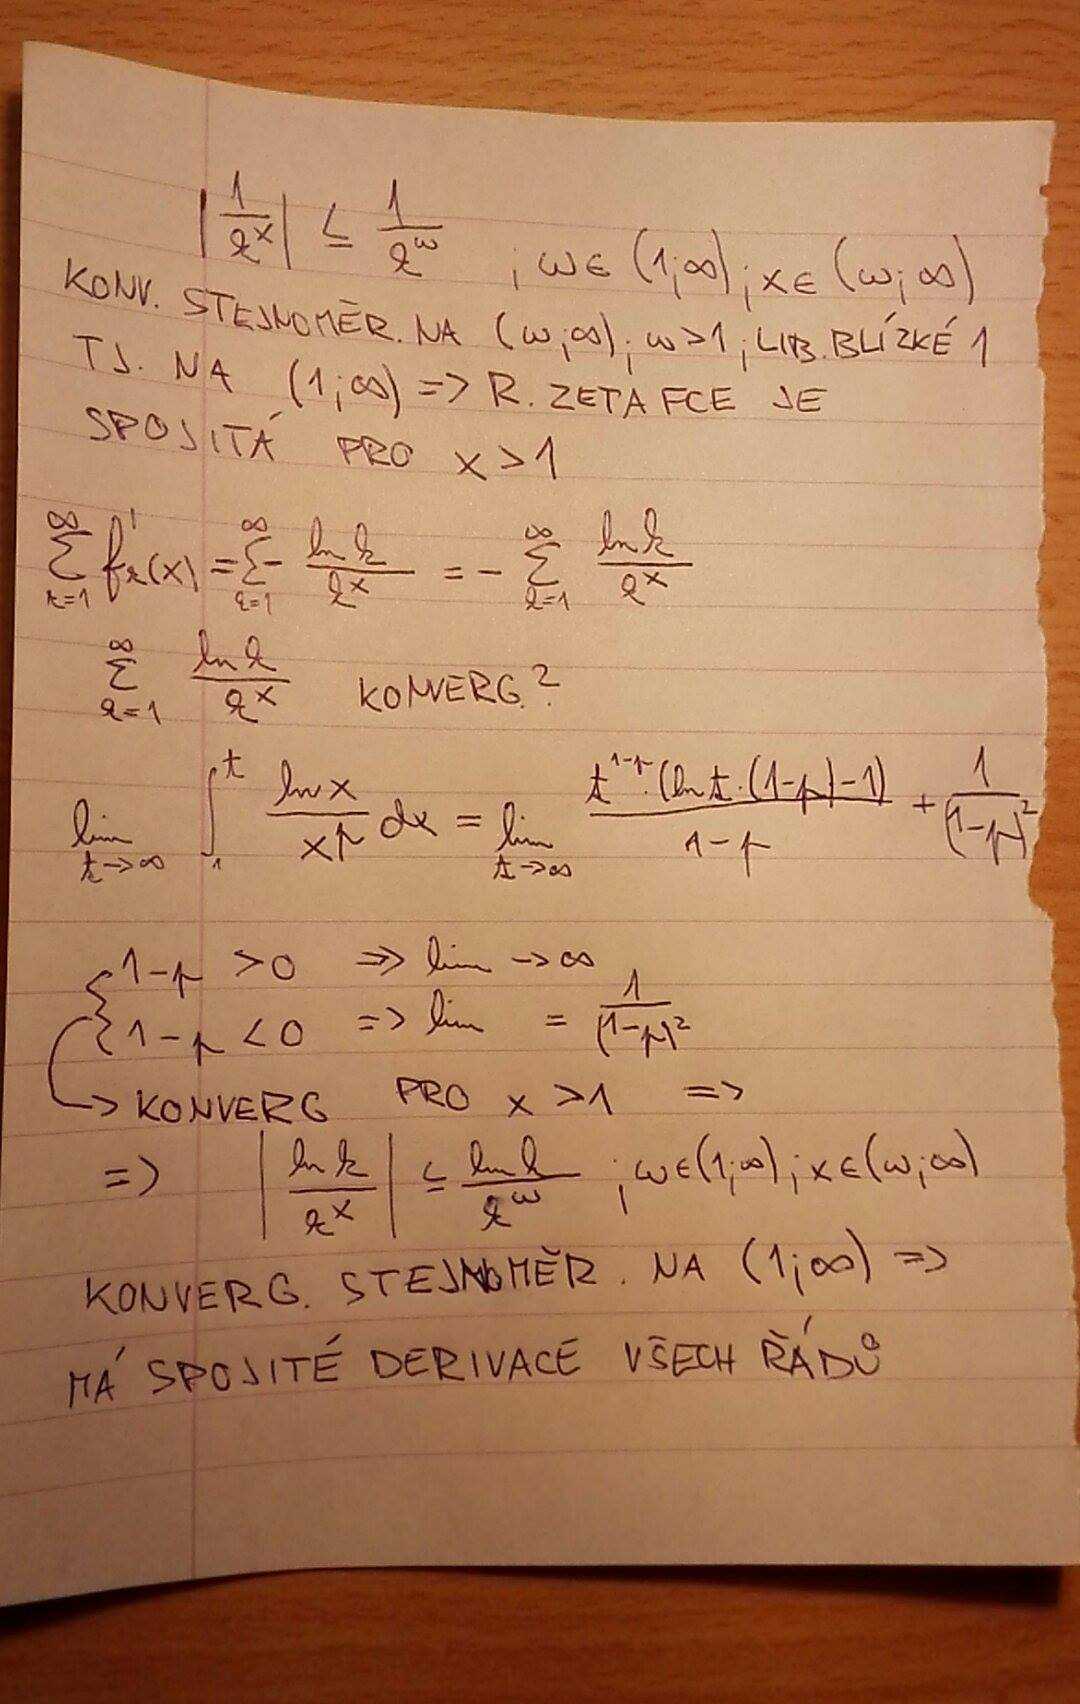 |1/k^x| ≤ 1/k^ω ; ω∈ (1;∞) ; x∈ (ω;∞)
KONV. STEJNOMĚR. NA (ω;∞) ; ω>1 ; LIB. BLÍZKÉ 1
TJ. NA (1;∞) => R. ZETA FCE JE
SPOJITÁ PRO x>1
∑_{k=1}^{∞} f_k'(x) = ∑_{k=1}^{∞} - ln k/k^x = - ∑_{k=1}^{∞} ln k/k^x
∑_{k=1}^{∞} ln k/k^x KONVERG.?
lim_{t→∞} ∫_1^t ln x/x^p dx = lim_{t→∞} t^{1-p}·(ln t·(1-p)-1)/1-p + 1/(1-p)^2
{ 1-p > 0 => lim → ∞
1-p < 0 => lim = 1/(1-p)^2
→ KONVERG PRO x>1 =>
=> |ln k/k^x| ≤ ln k/k^ω ; ω∈(1;∞) ; x∈(ω;∞)
KONVERG. STEJNOMĚR. NA (1;∞) =>
MÁ SPOJITÉ DERIVACE VŠECH ŘÁDŮ